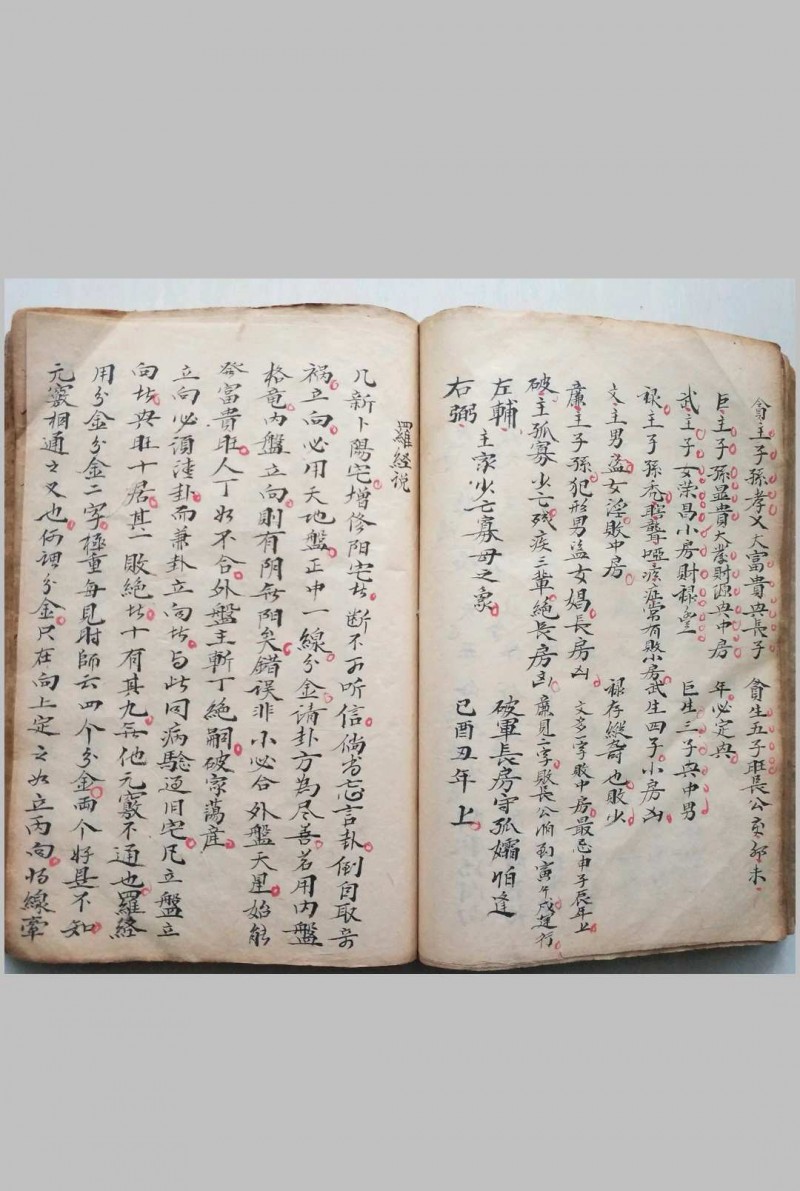 貪主子孫孝义大富貴興長子
貪生五子旺長公亥卯未
巨主子孫显貴大發財源興中房
年必定興
武主子女荣昌小房財禄豊
巨生三子興中男
禄主子孫秃瞎聾啞痰症常有敗小房
武生四子小房凶
文主男盗女淫敗中房
禄存縱奇也敗少
廉主子孫犯形男盗女娼長房凶
文多一字敗中房最忌申子辰年上
破主孤寡少亡残疾三輩絶長房凶
廉見二字敗長公怕到寅午戌運行
左輔
右弼
主家少亡寡母之象
破軍長房守孤孀怕逢
巳酉丑年上
羅经説
凡新卜陽宅增修阳宅者断不可听信倘若忘言卦倒自取奇
祸立向必用天地盤正中一線分金请卦方為尽善若用内盤
格竜内盤立向則有阴無阳矣錯误非小必合外盤天星始能
發富貴旺人丁如不合外盤主斬丁絶嗣破家蕩産
立向必須淸卦而兼卦立向者与此同病驗过旧宅凡立盤立
向者興旺十居其一敗絶者十有其九無他元竅不通也羅経
用分金分金二字極重每見时師云四个分金両个好是不知
元竅相通之义也何謂分金只在向上定之如立丙向怕線牽